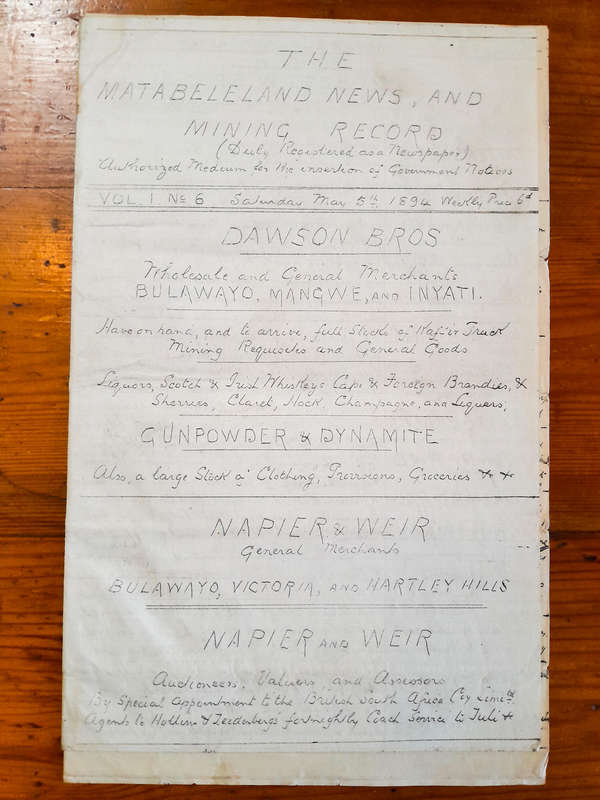 THE
MATABELELAND NEWS, AND
MINING RECORD
(Duly Registered as a Newspaper)
Authorized Medium for the insertion of Government Notices
VOL. 1 No 6 Saturday May 5th 1894 Weekly Price 6d
DAWSON BROS
Wholesale and General Merchants
BULAWAYO, MANGWE, AND INYATI.
Have on hand, and to arrive, full Stocks of Kaffir Truck
Mining Requisites and General Goods
Liquors, Scotch & Irish Whiskeys Cape & Foreign Brandies, &
Sherries, Claret, Hock, Champagne, and Liquers,
GUNPOWDER & DYNAMITE
Also, a large Stock of Clothing, Provisions, Groceries
NAPIER & WEIR
General Merchants
BULAWAYO, VICTORIA, AND HARTLEY HILLS
NAPIER AND WEIR
Auctioneers, Valuers and Assessors
By Special Appointment to the British South Africa Coy Limtd
Agents to & Zeederbergs fortnightly Coach Service to Tuli